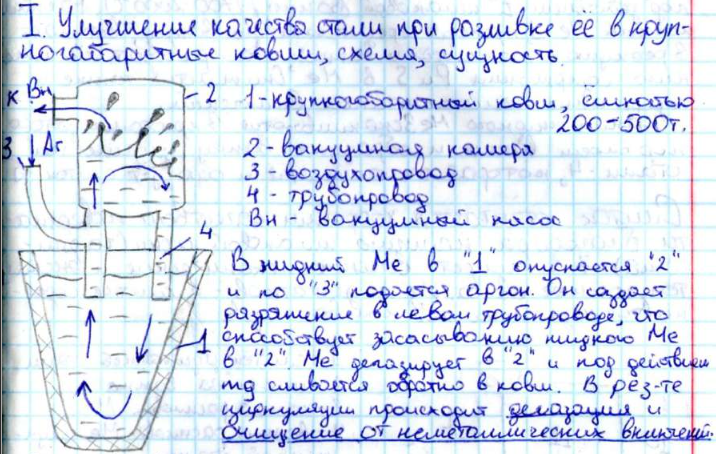 I. Улучшение качества стали при разливке её в круп-
ногабаритные ковши, схема, сущность.
к Вн
2
1-крупногабаритный ковш, ёмкостью
200-500т.
Ar
3
2- вакуумная камера
3 - воздухопровод
4 - трубопровод
Вн - вакуумный насос
4
В жидкий Ме в "1" опускается "2"
и по "3" подаётся аргон. Он создает
разряжение в левом трубопроводе, что
способствует засасыванию жидкого Ме
1
в "2". Ме дегазирует в "2" и под действием
mg сливается обратно в ковш. В рез-те
циркуляции происходит дегазация и
очищение от неметаллических включений.